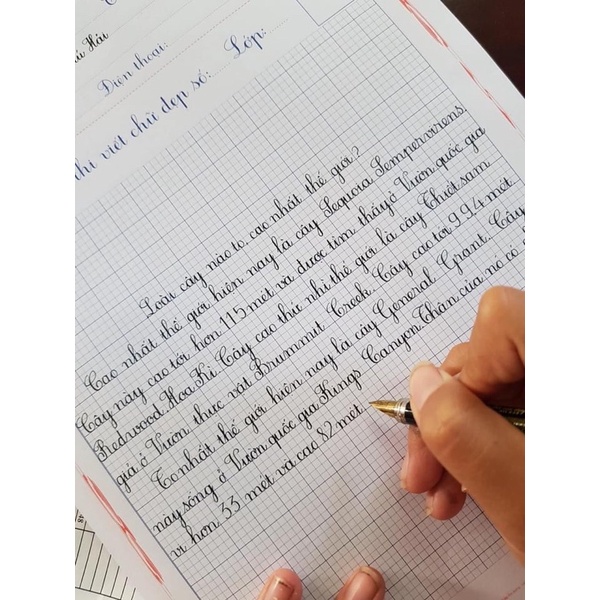 Hải
Điện thoại:
thi viết chữ đẹp số: Lớp:
Loài cây nào to, cao nhất thế giới?
Cao nhất thế giới hiện nay là cây Sequoia Sempervirens.
Cây này cao tới hơn 115 mét và được tìm thấy ở Vườn quốc gia
Redwood, Hoa Kì. Cây cao thứ nhì thế giới là cây Thuốt sam
giả ở Vườn thực vật Brummit Creek. Cây cao tới 99,4 mét
To nhất thế giới hiện nay là cây General Grant. Cây
này sống ở Vườn quốc gia Kings Canyon. Thân của nó có
vi hơn 33 mét và cao 82 mét.
48